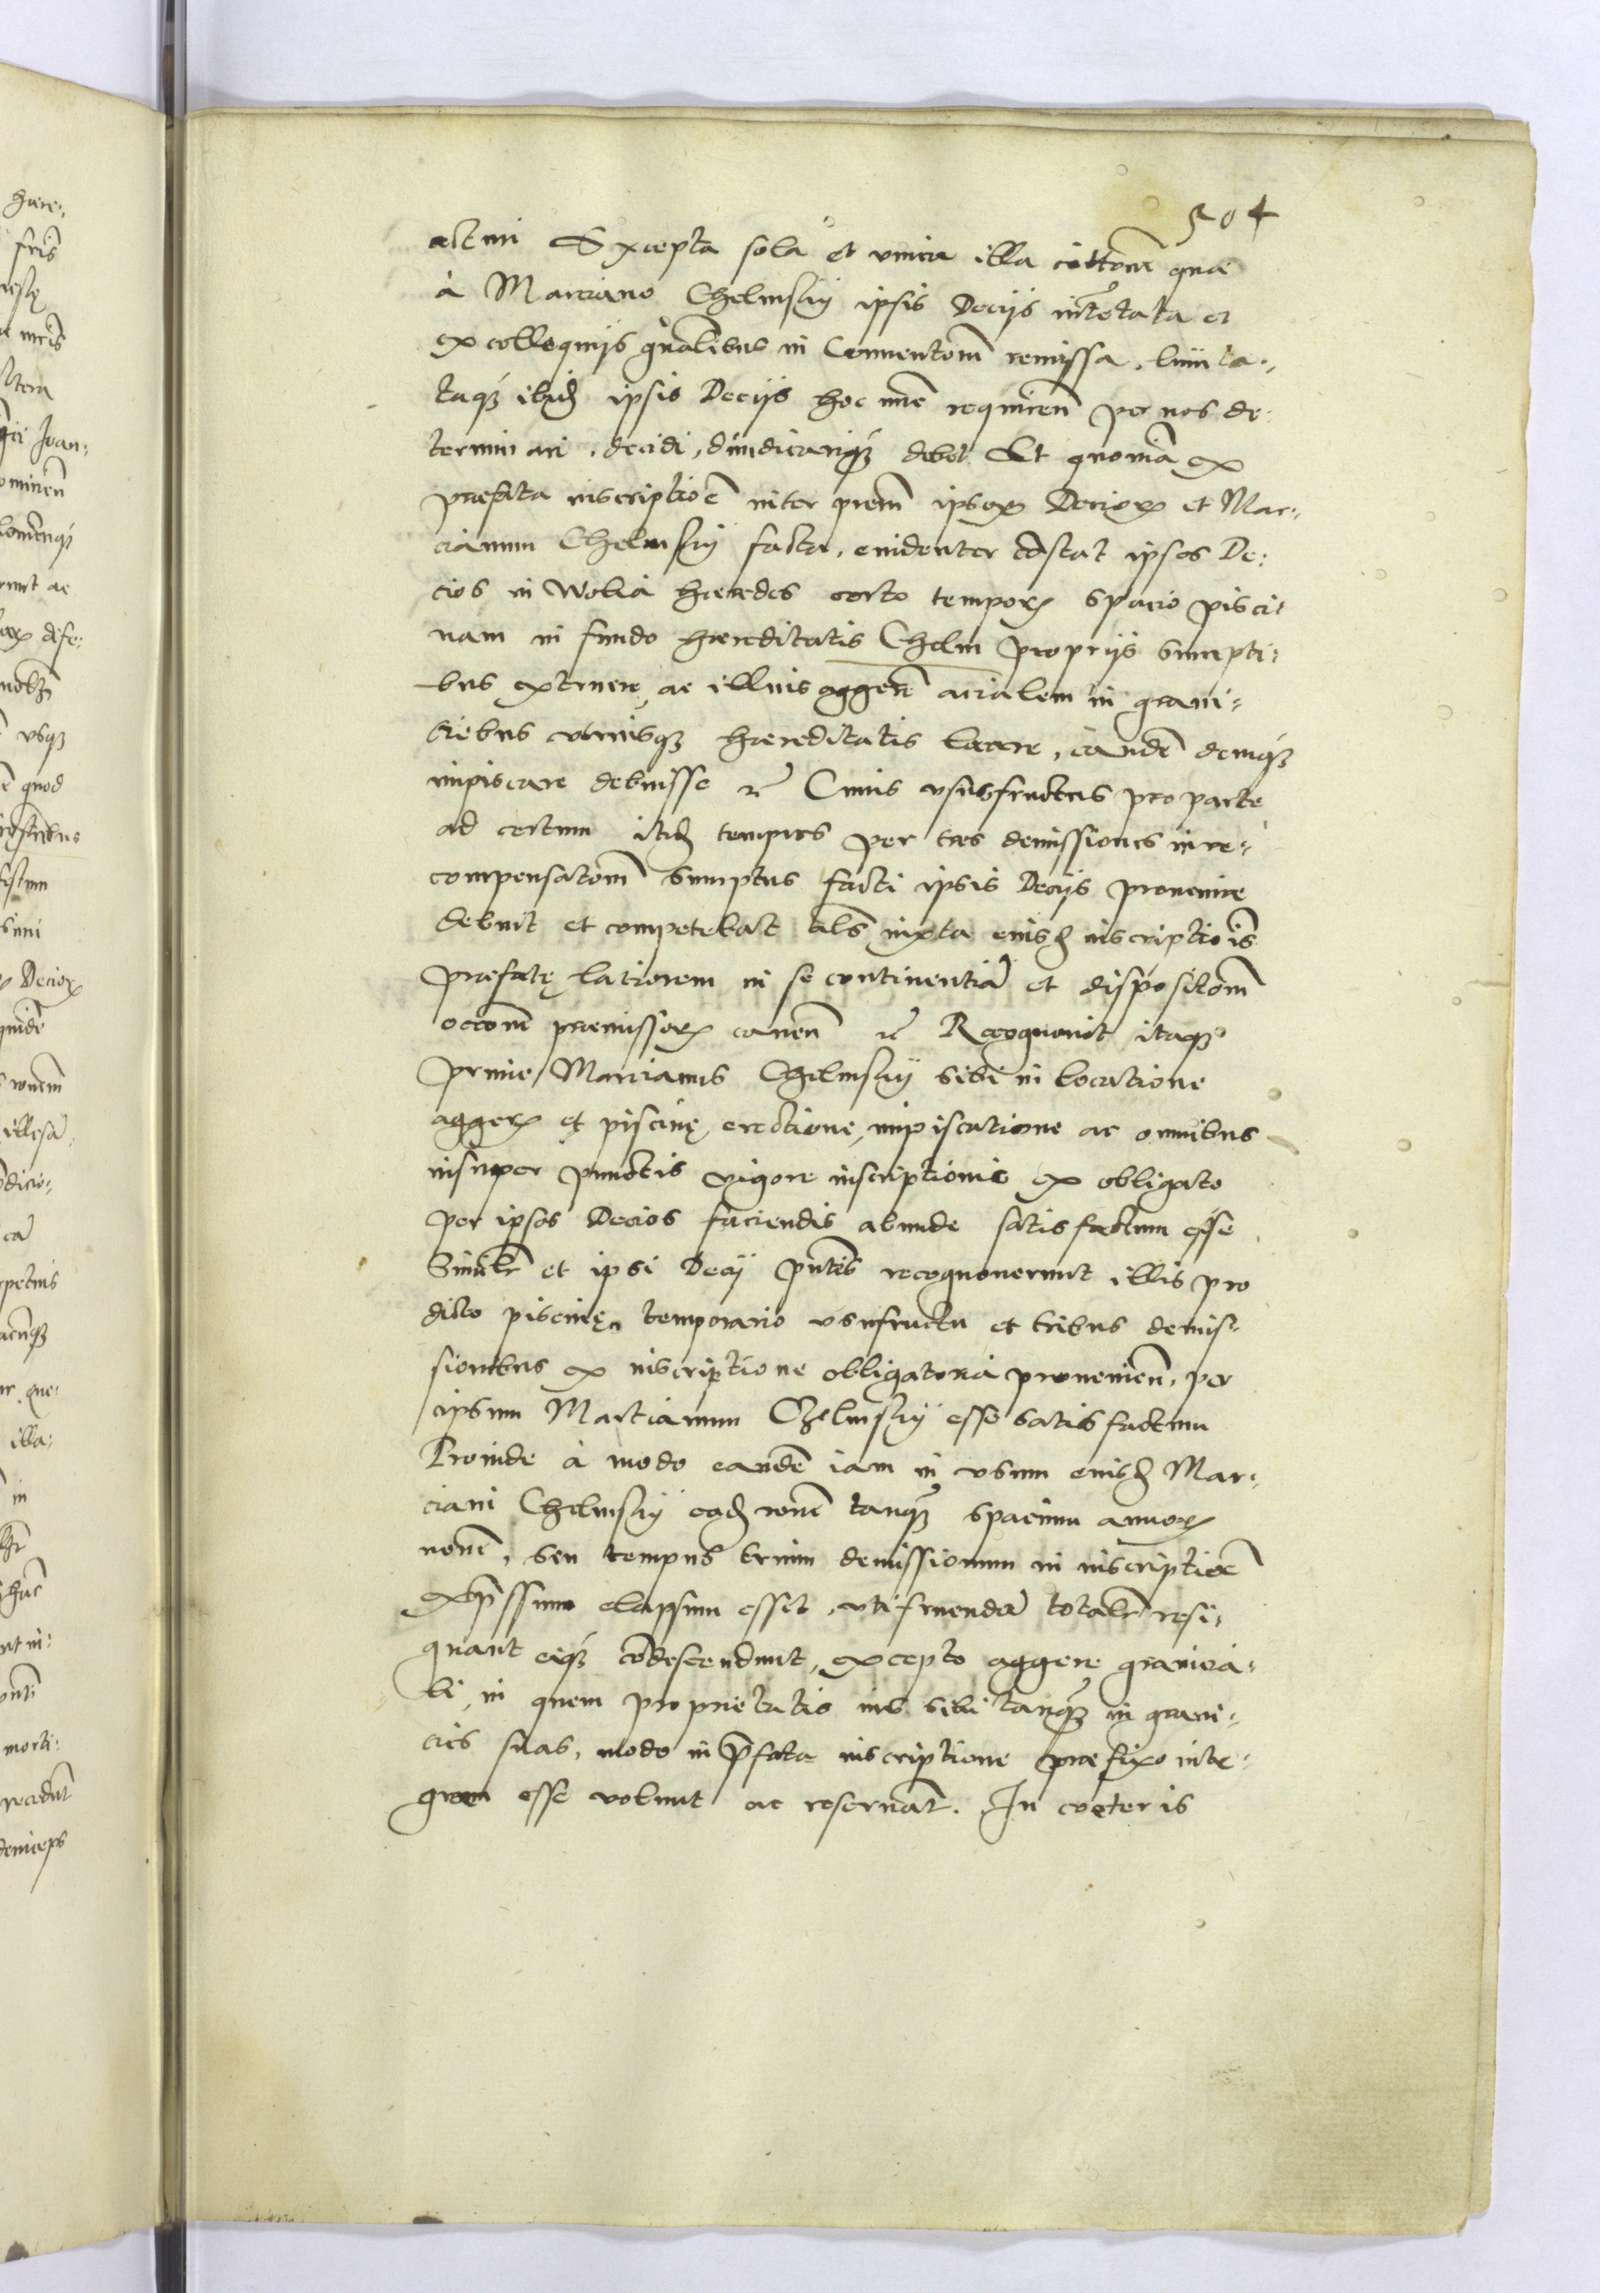 504
actum Excepta sola et vnica illa cittoem quae
à Marciano Chelmsky ipsis Decijs intētata et
ex colloquijs gnālibus in Conuentoem remissa, limita-
taq₃ ibid ipsis Decijs hoc nūc requireñ per nos de-
terminari, decidi, diiudicariq₃ debet Et quoniā ex
praefata inscriptioē inter prem̄ ipsoꝝ Decioꝝ et Mar-
cianum Chelmsky facta, euidenter cōstat ipsos De-
cios in Wolia haeredes certo temporꝭ spacio pisci-
nam in fundo haereditatis Chelm proprijs sumpti-
bus extruere, ac illius aggerē acialem in grani-
ciebus vtriusq₃ haereditatis locare, eandē deniq₃
impiscare debuisse rc̄ Cuius vsusfructus pro parte
ad certum itid tempus per tres demissiones in re-
compensatoem sumptus facti ipsis Decijs prouenire
debuit et competebat als̄ iuxta eiusd inscriptiois
praefatę latiorem in se continentiā et dispositoem
occōne praemissoꝝ caueñ rc̄ Recognouit itaq₃
prime Marcianus Chelmsky sibi in locatione
aggerꝭ et piscinę erectione, impiscatione ac omnibus
insuper punctis vigore inscriptionis ex obligato
per ipsos Decios faciendis abunde satisfactum esse
Similr̄ et ipsi Decij pn̄tes recognouerunt illis pro
dicto piscinę temporario vsufructu et tribus demis-
sionibus ex inscriptione obligatoria proueniē, per
ipsum Martianum Chelmsky esse satisfactum
Proinde à modo eandē iam in vsum eiusd Mar-
ciani Chelmsky ead rone tanq₃ spacium annoꝝ
nouē, seu tempus trium demissionum in inscriptioē
exp̄ssum elapsum esset, vtifruendā totalr̄ resi-
gnant eiq₃ cōdescendunt, excepto aggere granicia-
li, in quem proprietatis ius sibi tanq₃ in grani-
cies suas, modo in p̄fata inscriptione praefixo inte-
grum esse volunt ac reseruāt. In coeteris